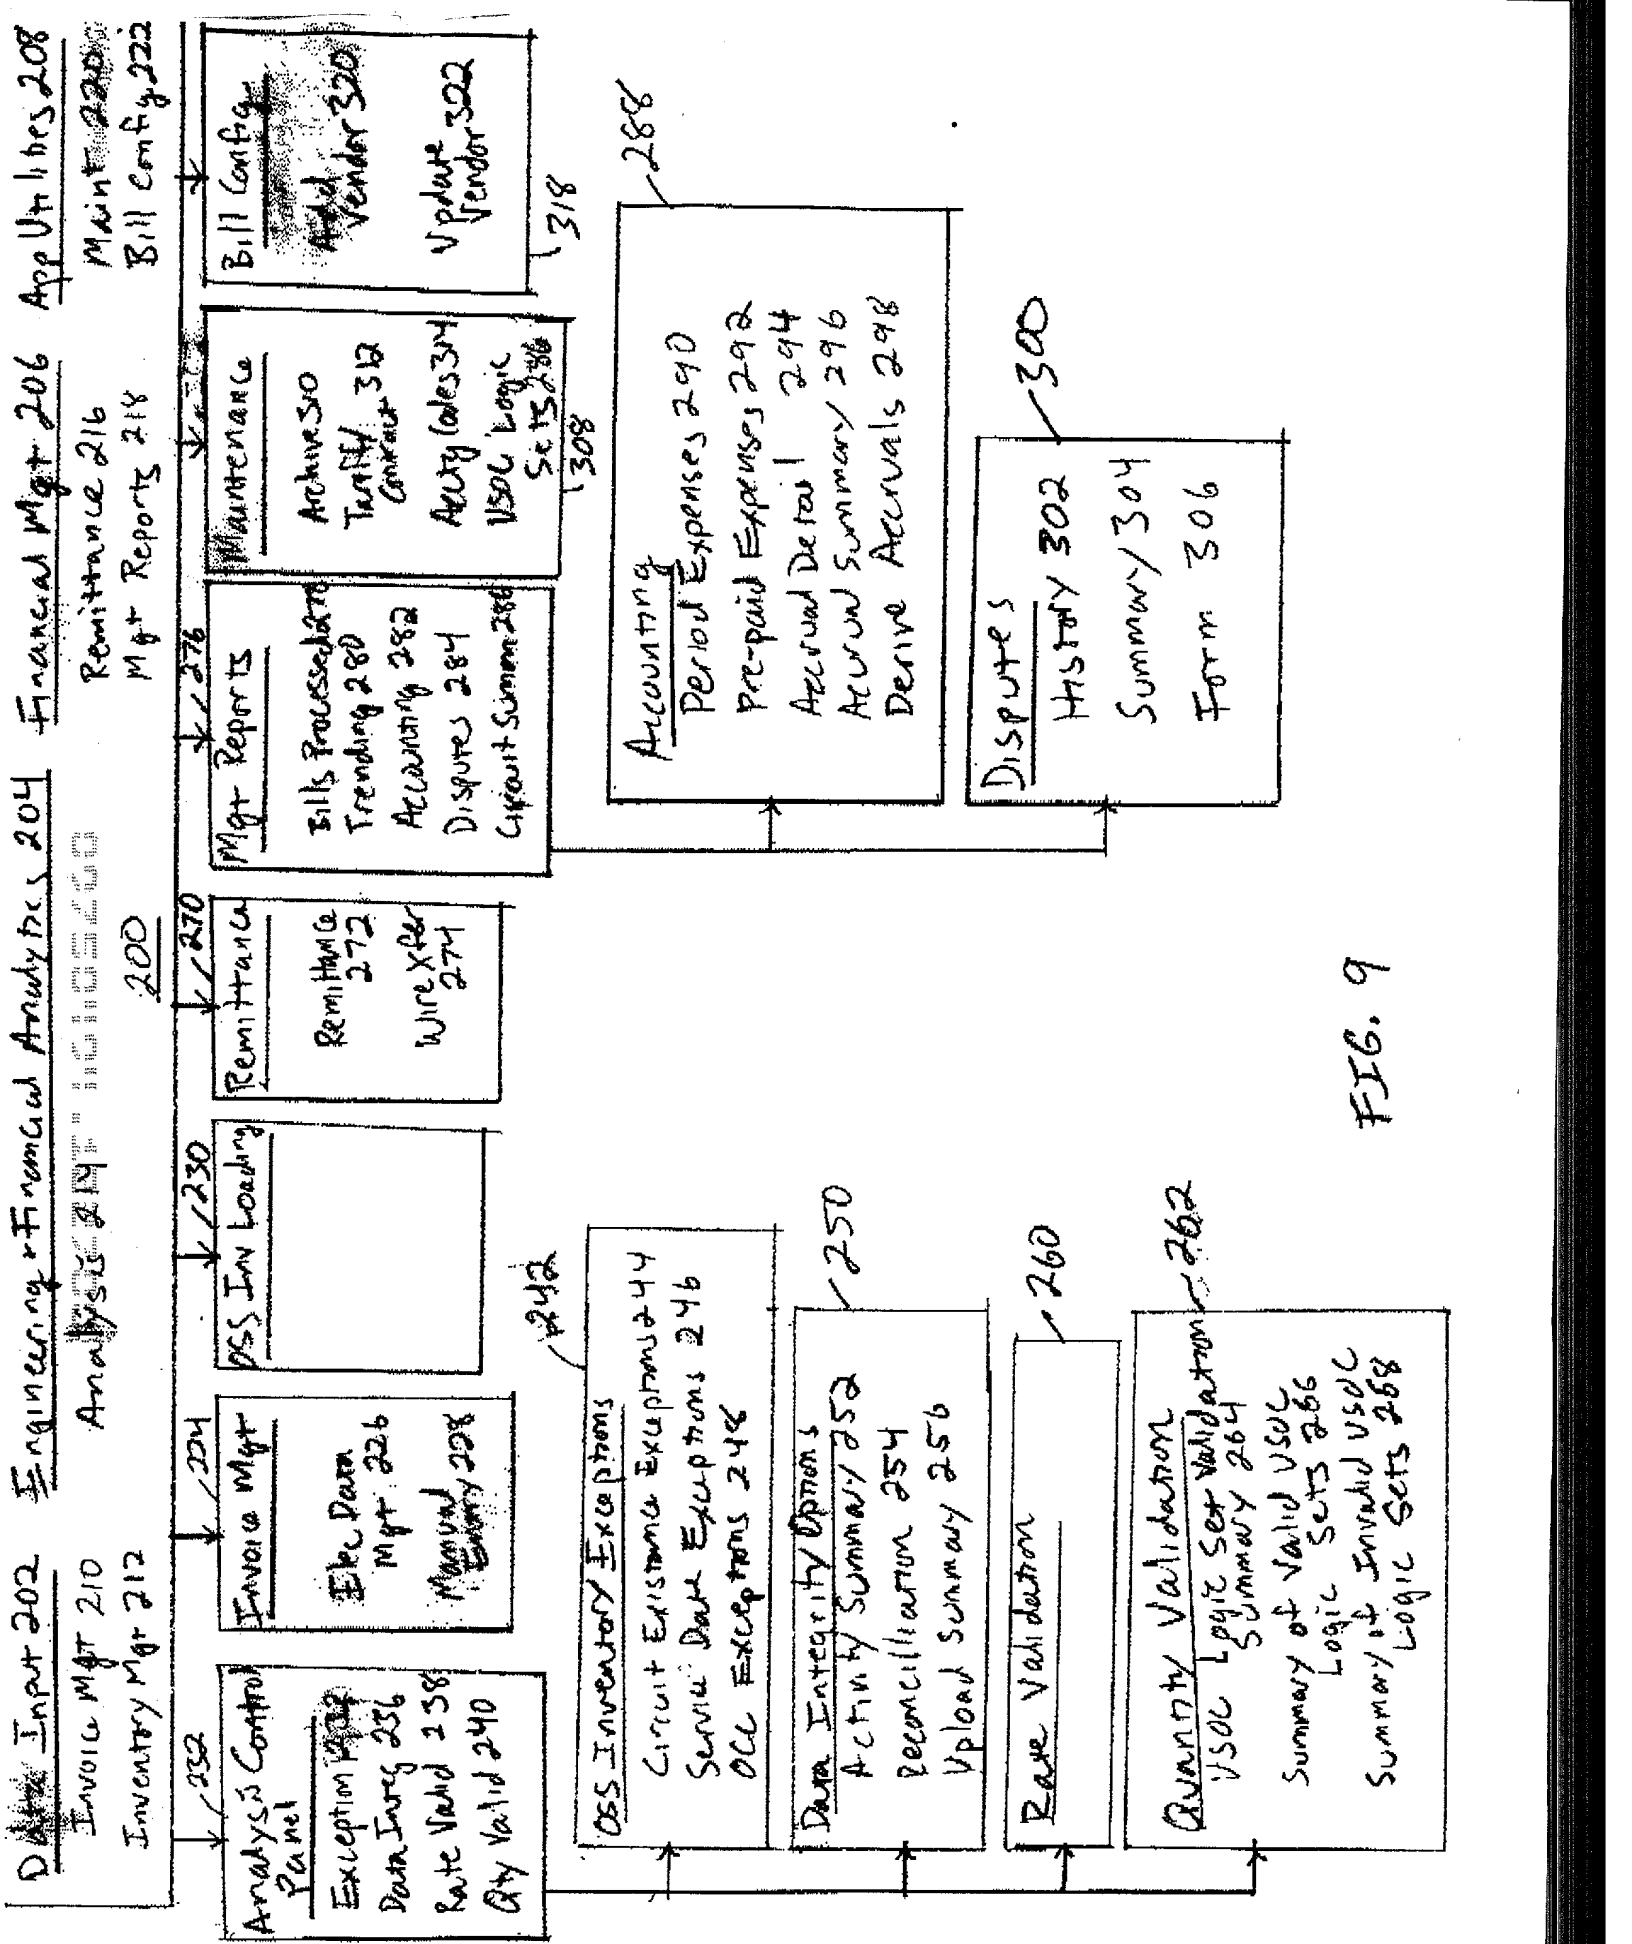 Data Input 202
Invoice Mgt 210
Inventory Mgt 212
Engineering + Financial Analytics 204
Analysis 214
Financial Mgt 206
Remittance 216
Mgt Reports 218
App Utilities 208
Maint 220
Bill Config 222
200
232
Analysis Control
Panel
Exception
Data Integ 236
Rate Valid 238
Qty Valid 240
224
Invoice Mgt
Elec Data
Mgt 226
Manual
Entry 228
230
OSS Inv Loading
270
Remittance
Remittance
272
Wire Xfer
274
276
Mgt Reports
Bills Processed 278
Trending 280
Accounting 282
Disputes 284
Circuit Summ 286
Maintenance
Archive 310
Tariff/
Contract 312
Acctg Codes 314
USOC Logic
Sets 286
308
Bill Config
Add
Vendor 320
Update
Vendor 322
318
242
OSS Inventory Exceptions
Circuit Existence Exceptions 244
Service Date Exceptions 246
OCC Exceptions 248
250
Data Integrity Options
Activity Summary 252
Reconciliation 254
Upload Summary 256
260
Rate Validation
262
Quantity Validation
USOC Logic Set Validation
Summary 264
Summary of Valid USOC
Logic Sets 266
Summary of Invalid USOC
Logic Sets 268
288
Accounting
Period Expenses 290
Pre-paid Expenses 292
Accrual Detail 294
Accrual Summary 296
Derive Accruals 298
300
Disputes
History 302
Summary 304
Form 306
FIG. 9